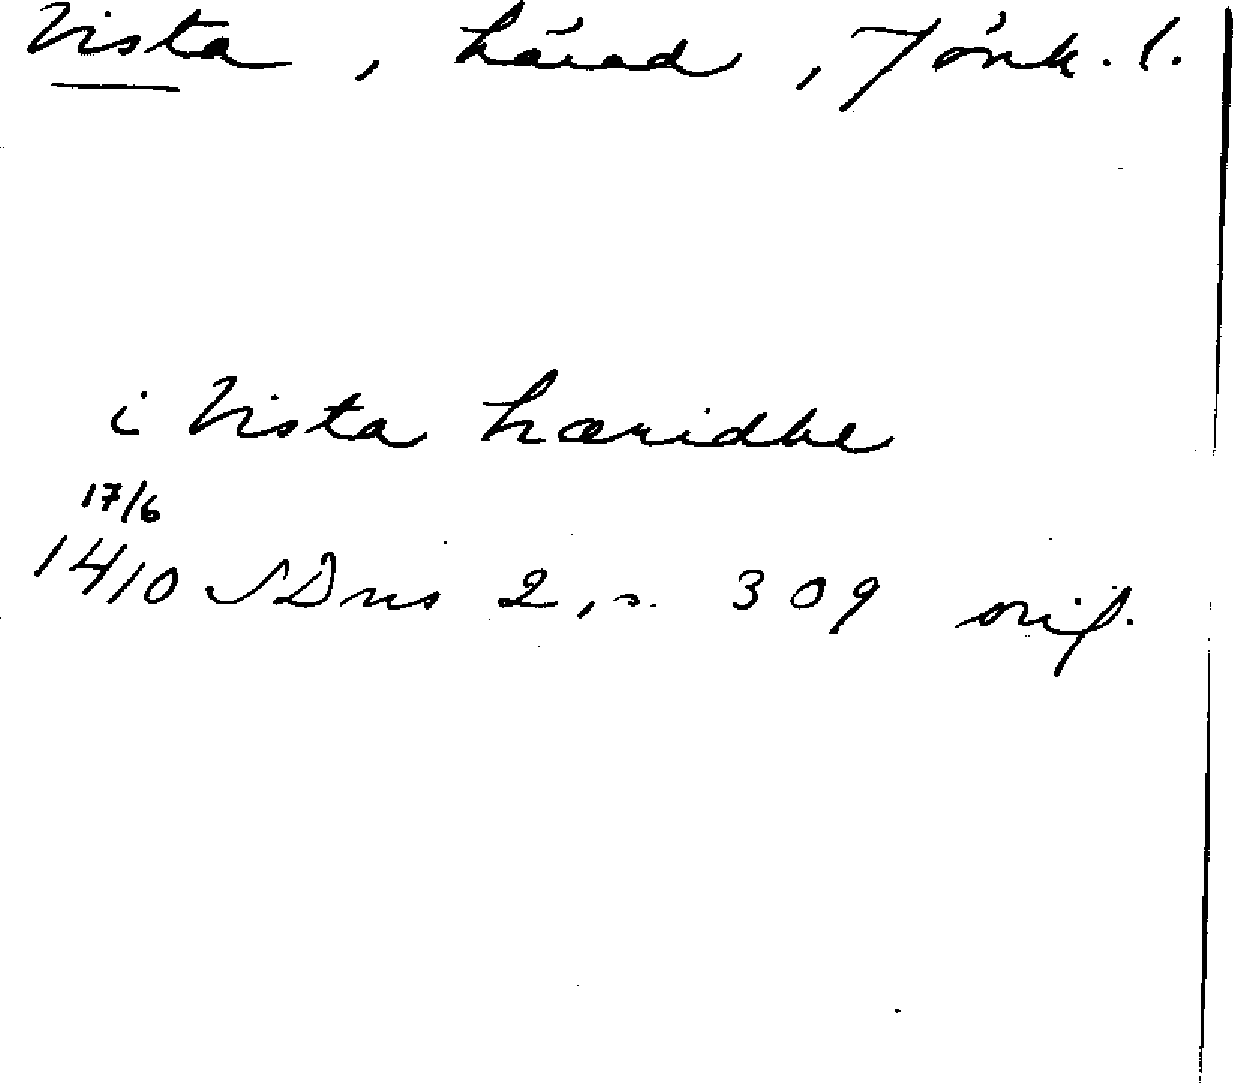 Vista, härad, Jönk. l.
i Vista hæridhe
17/6
1410 SDns 2, s. 309 orig.